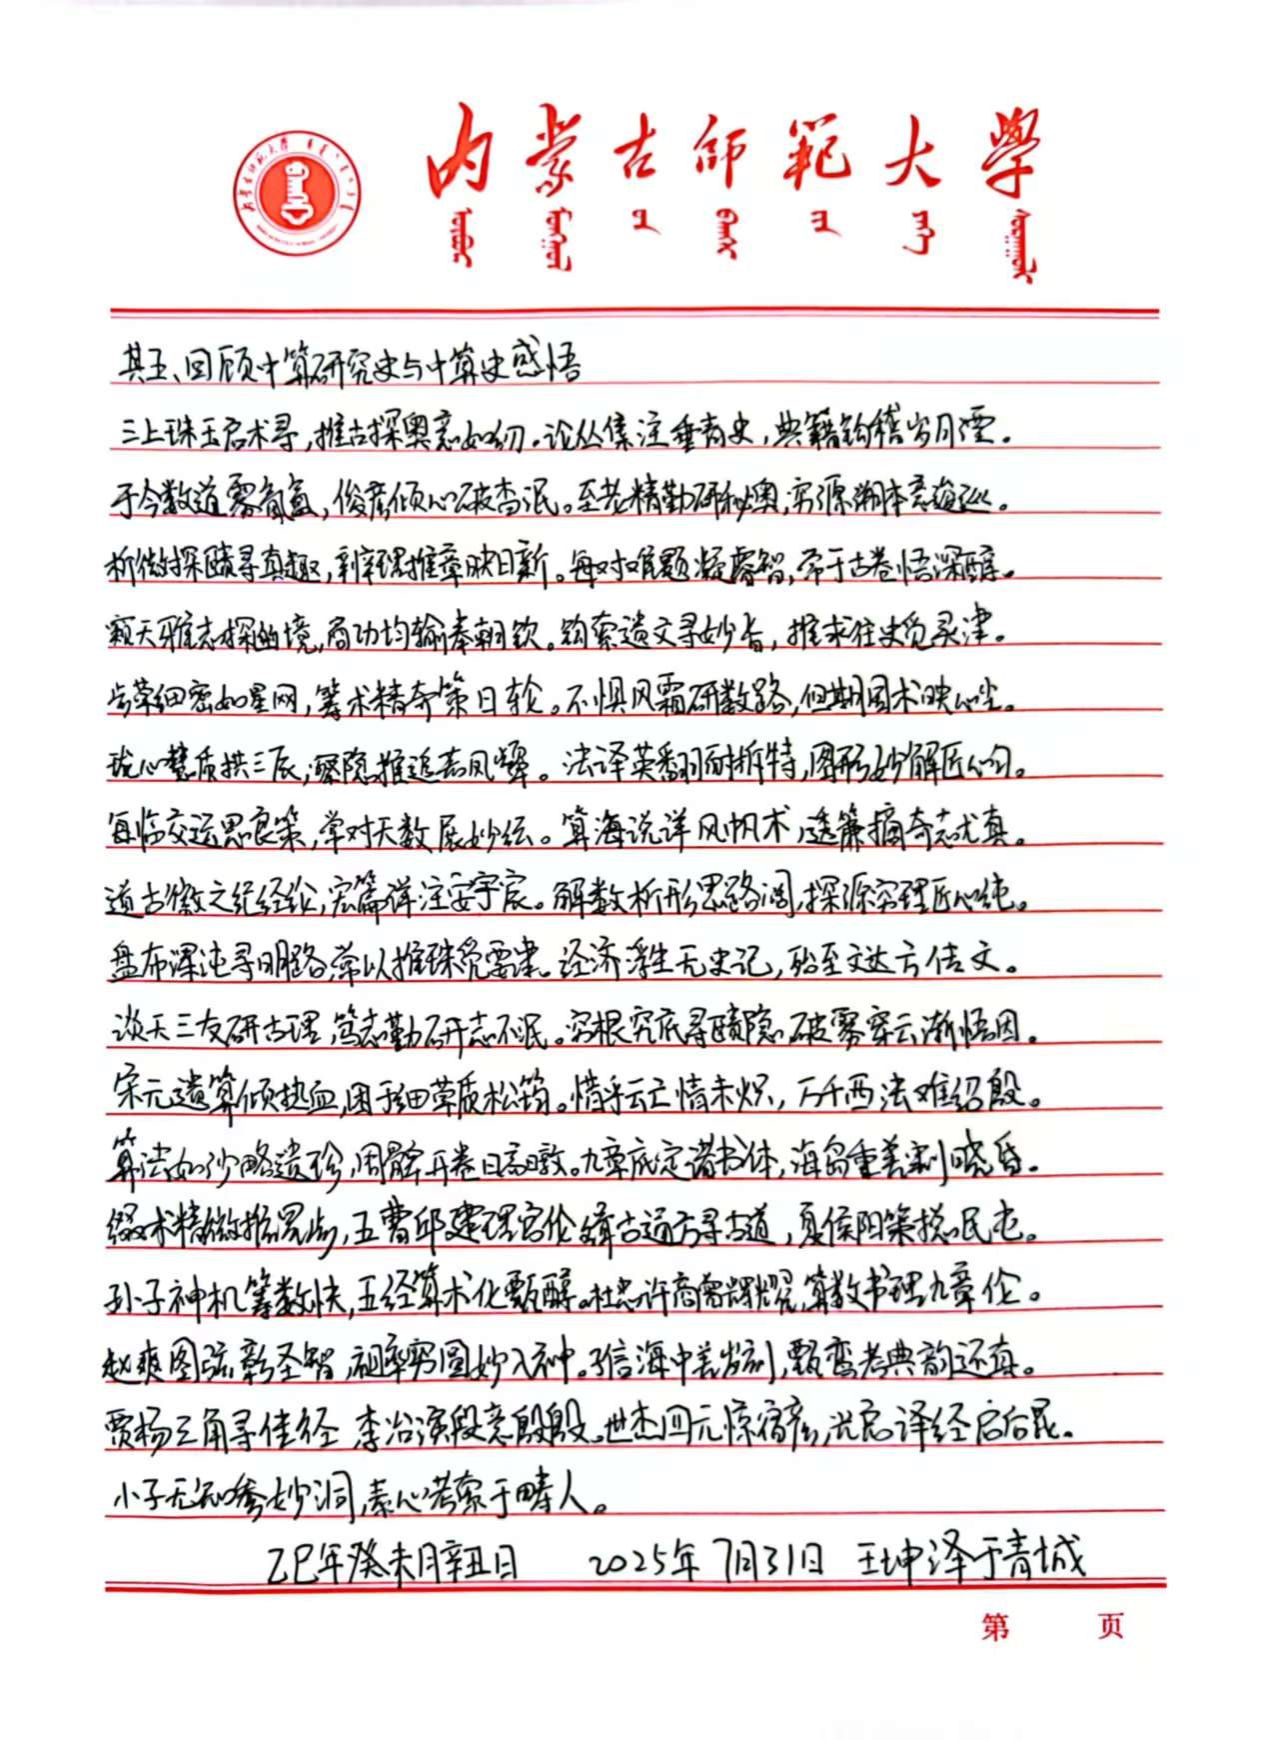 内蒙古师范大学
其五、回顾中算研究史与中算史感悟
三上珠玉启术寻,推古探奥意如纫。论丛集注垂青史,典籍钩稽岁月湮。
于今数道雾氤氲,俊彦倾心破杳泯。至老精勤研秘奥,穷源溯本意逡巡。
析微探赜寻真趣,剖理推章映日新。每对难题凝睿智,常于古卷悟深醇。
观天雅志探幽境,商功均输奉朝钦。钩索遗文寻妙旨,推求往史觅灵津。
步草细密如星网,筹术精奇策日轮。不惧风霜研数路,但期国术映心尘。
珑心慧质拱三辰,深隐推追若凤麟。法译英翻耐拆特,图形妙解匠心匀。
每临交运思良策,常对天数展妙纭。算海说详风帆术,透帘摘奇志尤真。
道古徽之纪经纶,宏篇详注安宇宸。解数析形思路阔,探源穷理匠心纯。
盘布浑沌寻明路,常以推珠觅要津。经济浮生无史记,殆至文达方佳文。
谈天三友研古理,笃志勤研志不泯。穷根究底寻赜隐,破雾穿云渐悟因。
宋元遗算倾热血,困于细草质松筠。惜乎云亡情未炽,万千西法难绍殷。
算法如沙略遗珍,周髀开卷日高暾。九章底定诸书体,海岛重差刺晓昏。
缀术精微推晷齿,五曹邱建理宫伦。缉古通方寻古道,夏侯阳策揽民屯。
孙子神机筹数快,五经算术化甄醇。杜忠许商需辉耀,算数书理九章伦。
赵爽图弦彰圣智,祖率穷圆妙入神。信海中差发刻,甄鸾考典韵还真。
贾杨三角寻佳径,李冶演段意殷殷。世杰四元惊宿彦,光启译经启后昆。
小子无知参妙洞,素心考索于畴人。
乙巳年癸未月辛丑日 2025年7月31日 王坤泽于青城
第 页